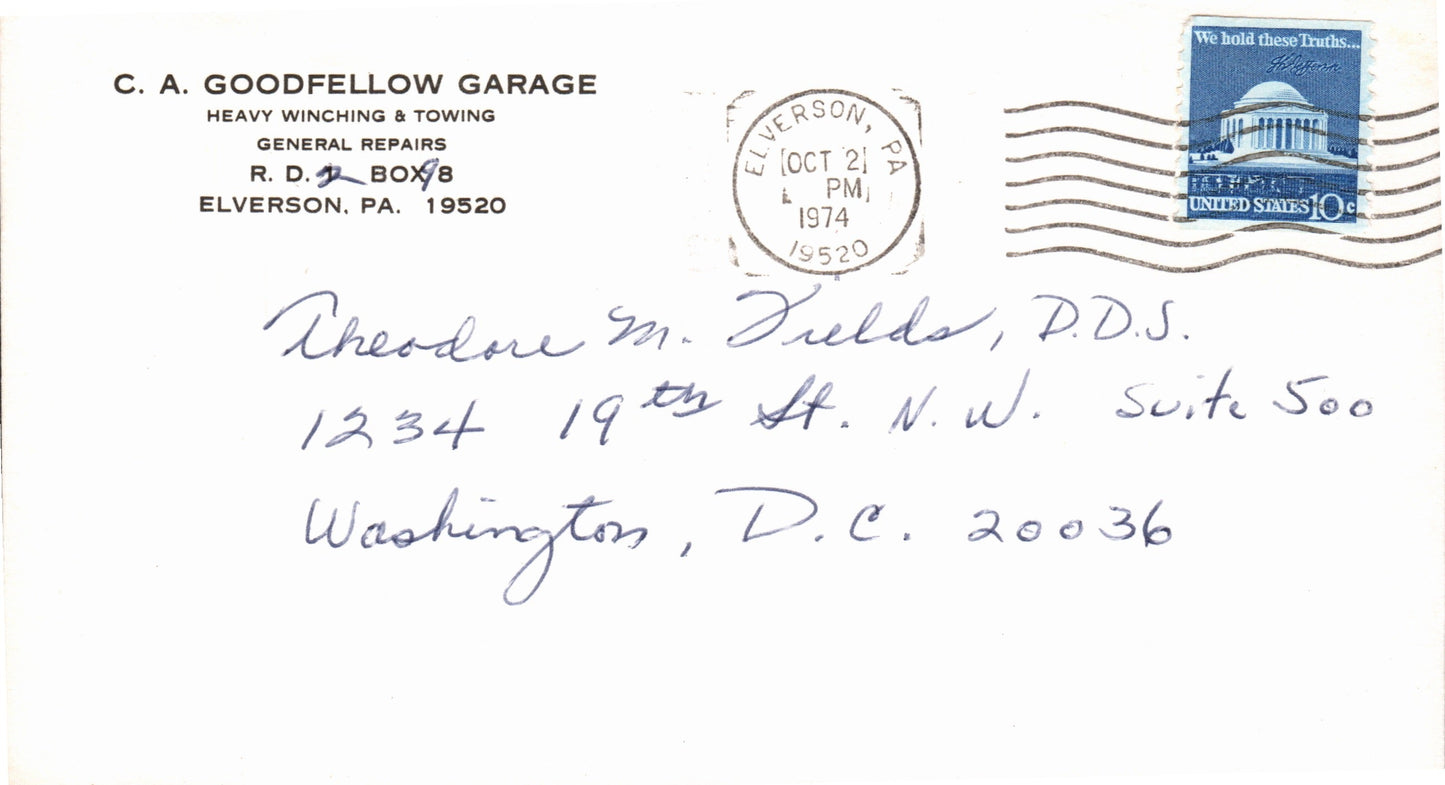 C. A. GOODFELLOW GARAGE
HEAVY WINCHING & TOWING
GENERAL REPAIRS
R. D. 2 BOX 98
ELVERSON, PA. 19520
ELVERSON, PA
OCT 21
PM
1974
19520
We hold these Truths...
UNITED STATES 10c
Theodore M. Fields, D.D.S.
1234 19th St. N.W. Suite 500
Washington, D.C. 20036